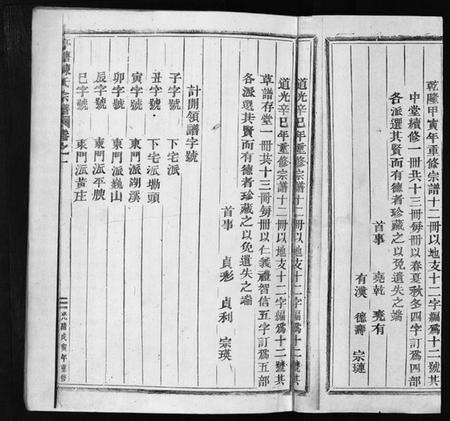 乾隆甲寅年重修宗譜十二冊以地支十二字編為十二號其
中堂續修一冊共十三冊每冊以春夏秋冬四字訂為四部
各派選其賢而有德者珍藏之以免遺失之端
首事 堯乾 堯有
有漢 德壽 宗璉
道光辛巳年重修宗譜十二冊以地支十二字編為十二號其
草譜存堂一冊共十三冊每冊以仁義禮智信五字訂為五部
各派選其賢而有德者珍藏之以免遺失之端
首事 貞彩 貞利 宗瑛
計開領譜字號
子字號 下宅派
丑字號 下宅派塘頭
寅字號 東門派湖溪
卯字號 東門派巍山
辰字號 東門派平腴
巳字號 東門派黃庄
氏宗譜 卷之一
光緒戊寅年重修